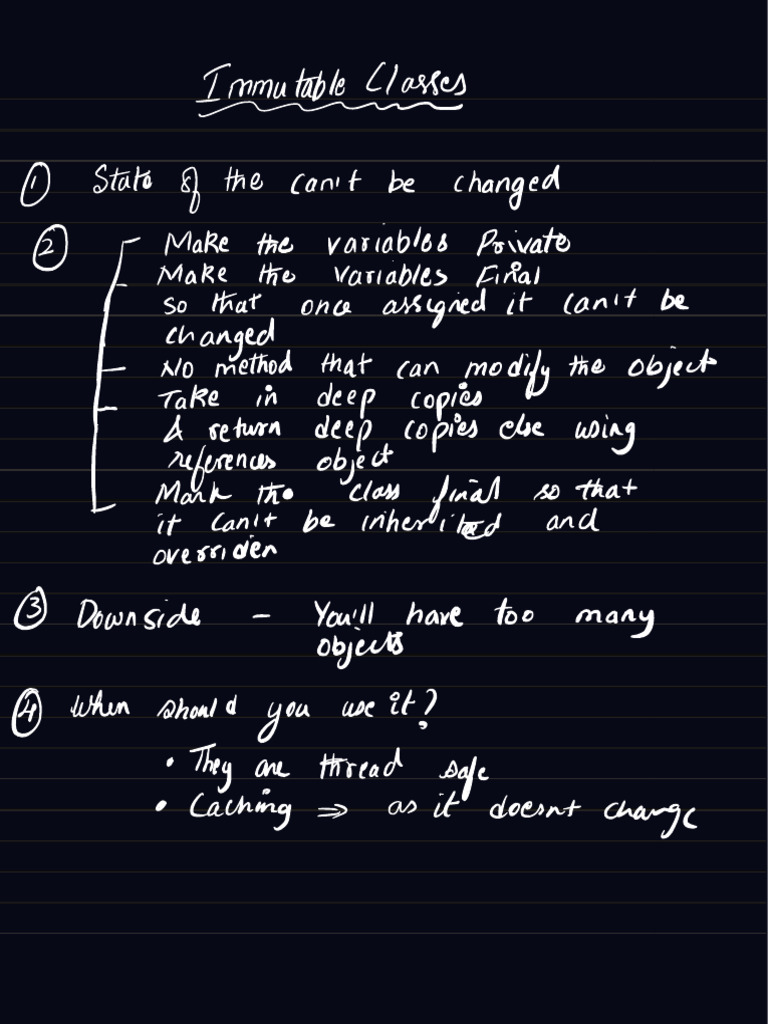 Immutable Classes
① State of the can't be changed
② Make the variables Private
Make the variables Final
so that once assigned it can't be
changed
No method that can modify the object
Take in deep copies
& return deep copies else using
references object
Mark the class final so that
it can't be inherited and
overriden
③ Downside - You'll have too many
objects
④ When should you use it?
• They are thread safe
• Caching ⇒ as it doesnt change